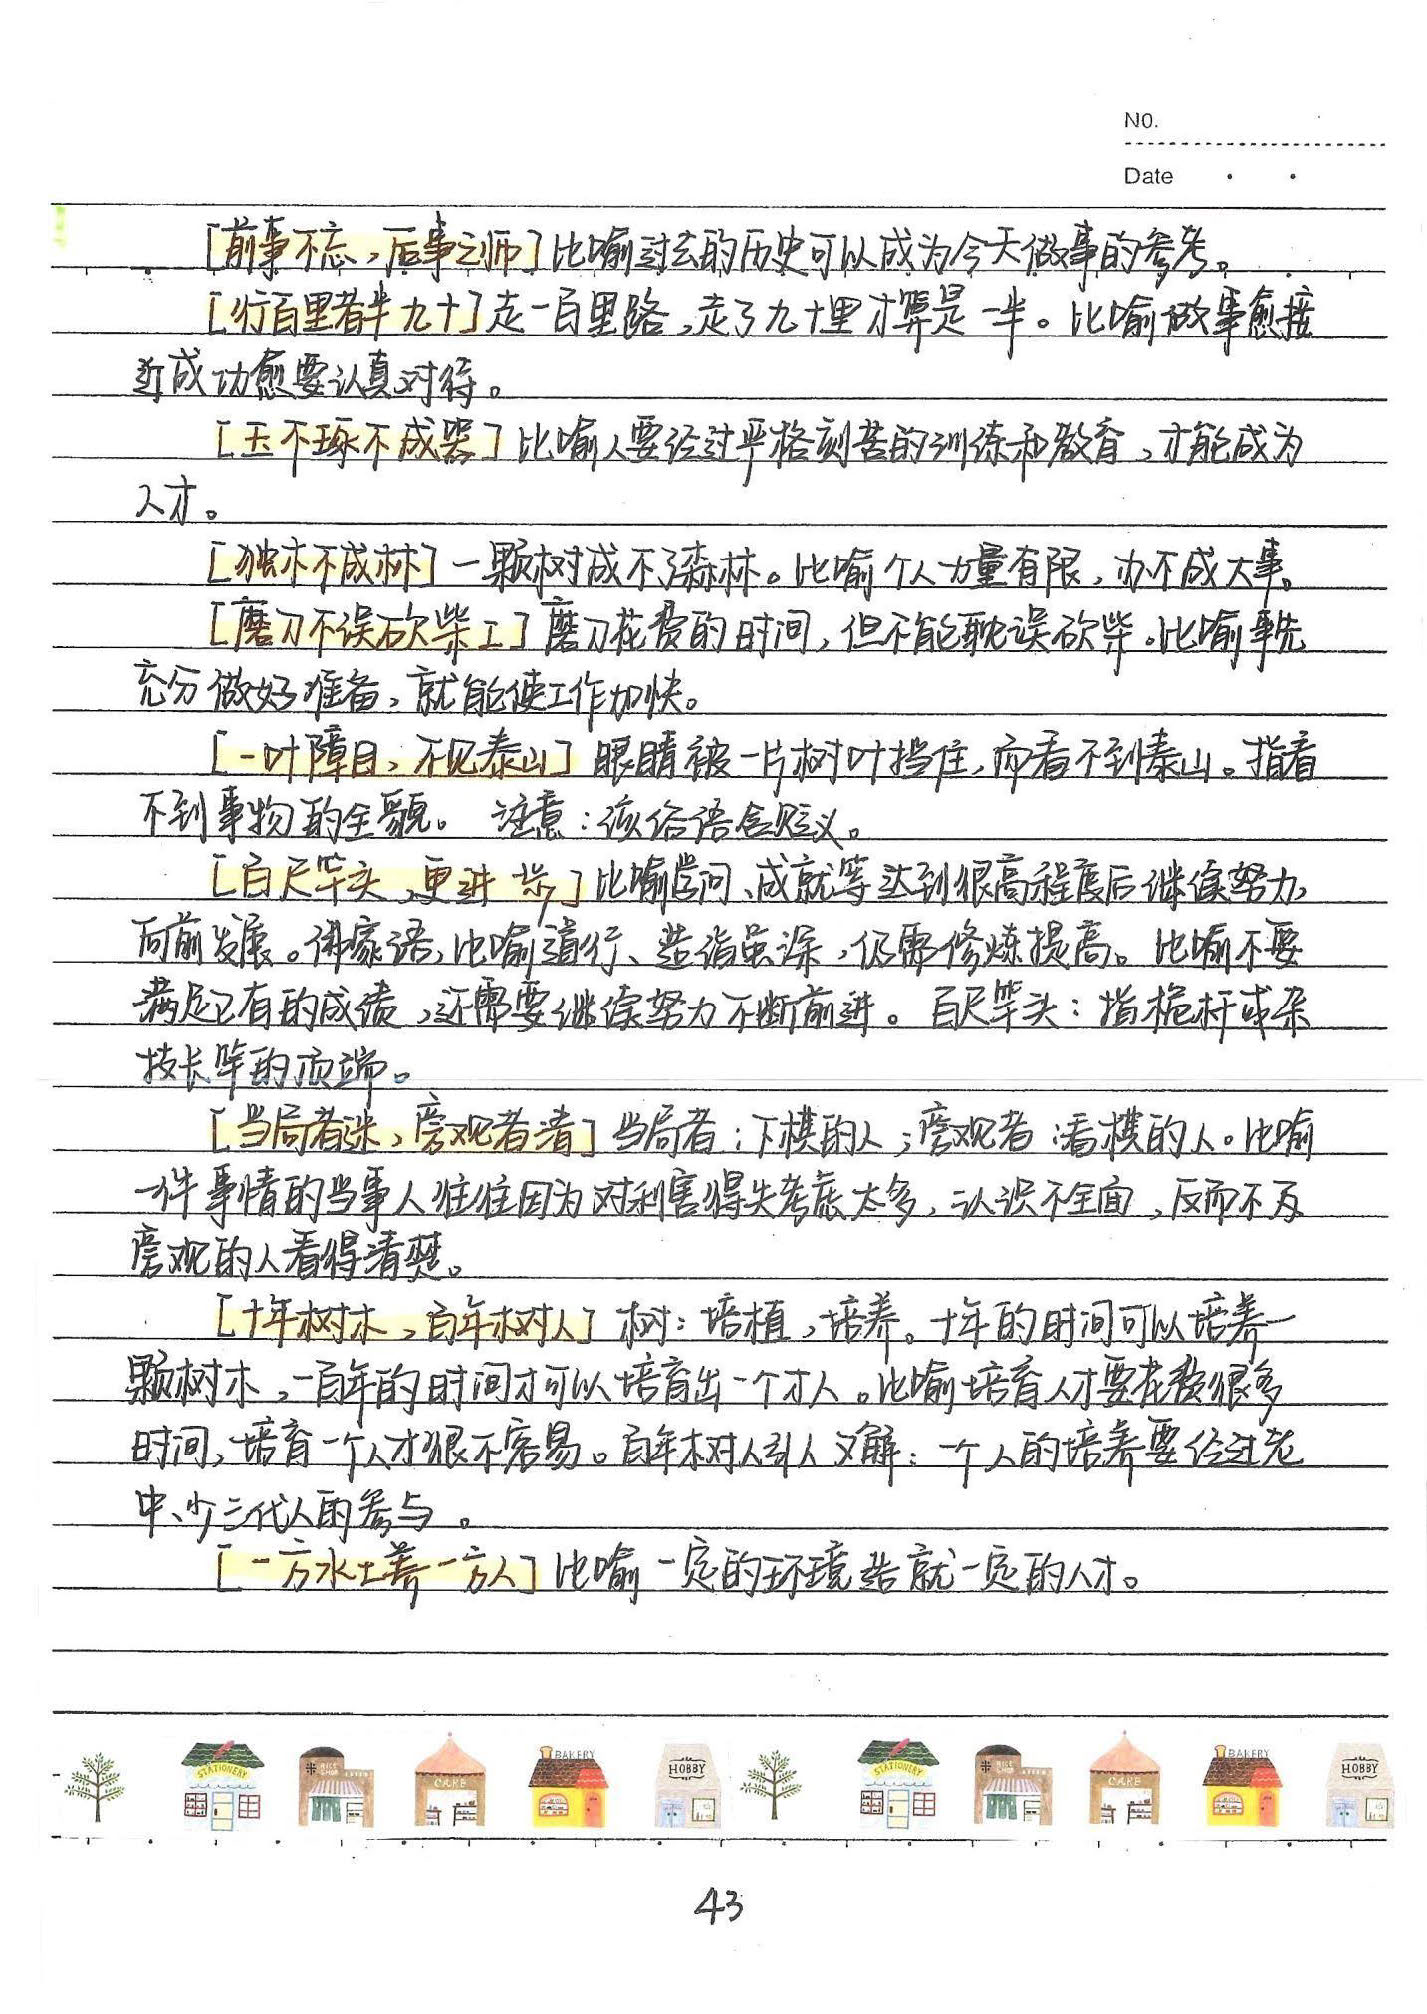 NO.
Date
[前事不忘，后事之师]比喻过去的历史可以成为今天做事的参考。
[行百里者半九十]走一百里路，走了九十里才算是一半。比喻做事愈接
近成功愈要认真对待。
[玉不琢不成器]比喻人要经过严格刻苦的训练和教育，才能成为
人才。
[独木不成林]一颗树成不了森林。比喻个人力量有限，办不成大事。
[磨刀不误砍柴工]磨刀花费的时间，但不能耽误砍柴。比喻事先
充分做好准备，就能使工作加快。
[一叶障目，不见泰山]眼睛被一片树叶挡住，而看不到泰山。指看
不到事物的全貌。 注意：该俗语含贬义。
[百尺竿头，更进一步]比喻学问、成就等达到很高程度后继续努力，
向前发展。佛家语，比喻道行、造诣虽深，仍需修炼提高。比喻不要
满足已有的成绩，还需要继续努力不断前进。百尺竿头：指桅杆或杂
技长竿的顶端。
[当局者迷，旁观者清]当局者：下棋的人；旁观者：看棋的人。比喻
一件事情的当事人往往因为对利害得失考虑太多，认识不全面，反而不及
旁观的人看得清楚。
[十年树木，百年树人]树：培植，培养。十年的时间可以培养一
颗树木，一百年的时间才可以培育出一个才人。比喻培育人才要花费很多
时间，培育一个人才很不容易。百年树人引人义解：一个人的培养要经过老
中、少三代人的参与。
[一方水土养一方人]比喻一定的环境造就一定的人才。
STATIONERY
RICE SHOP
CAKE
BAKERY
HOBBY
STATIONERY
RICE SHOP
CAKE
BAKERY
HOBBY
43